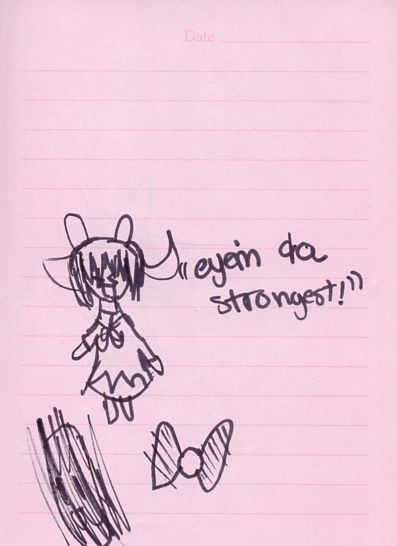 Date
"eyem da
strongest!"